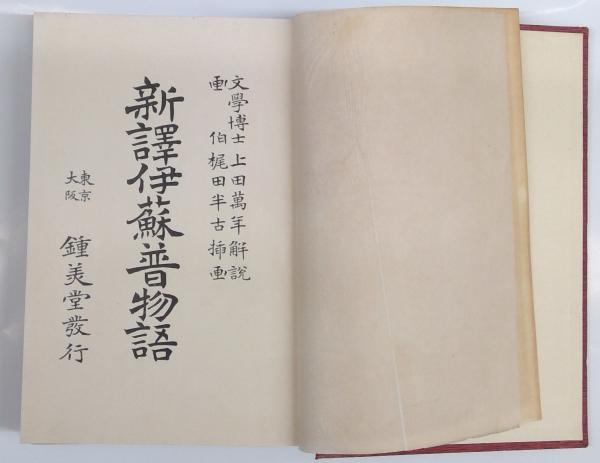 文學博士上田萬年解説
画伯梶田半古挿画
新譯伊蘇普物語
東京
大阪
鍾美堂發行